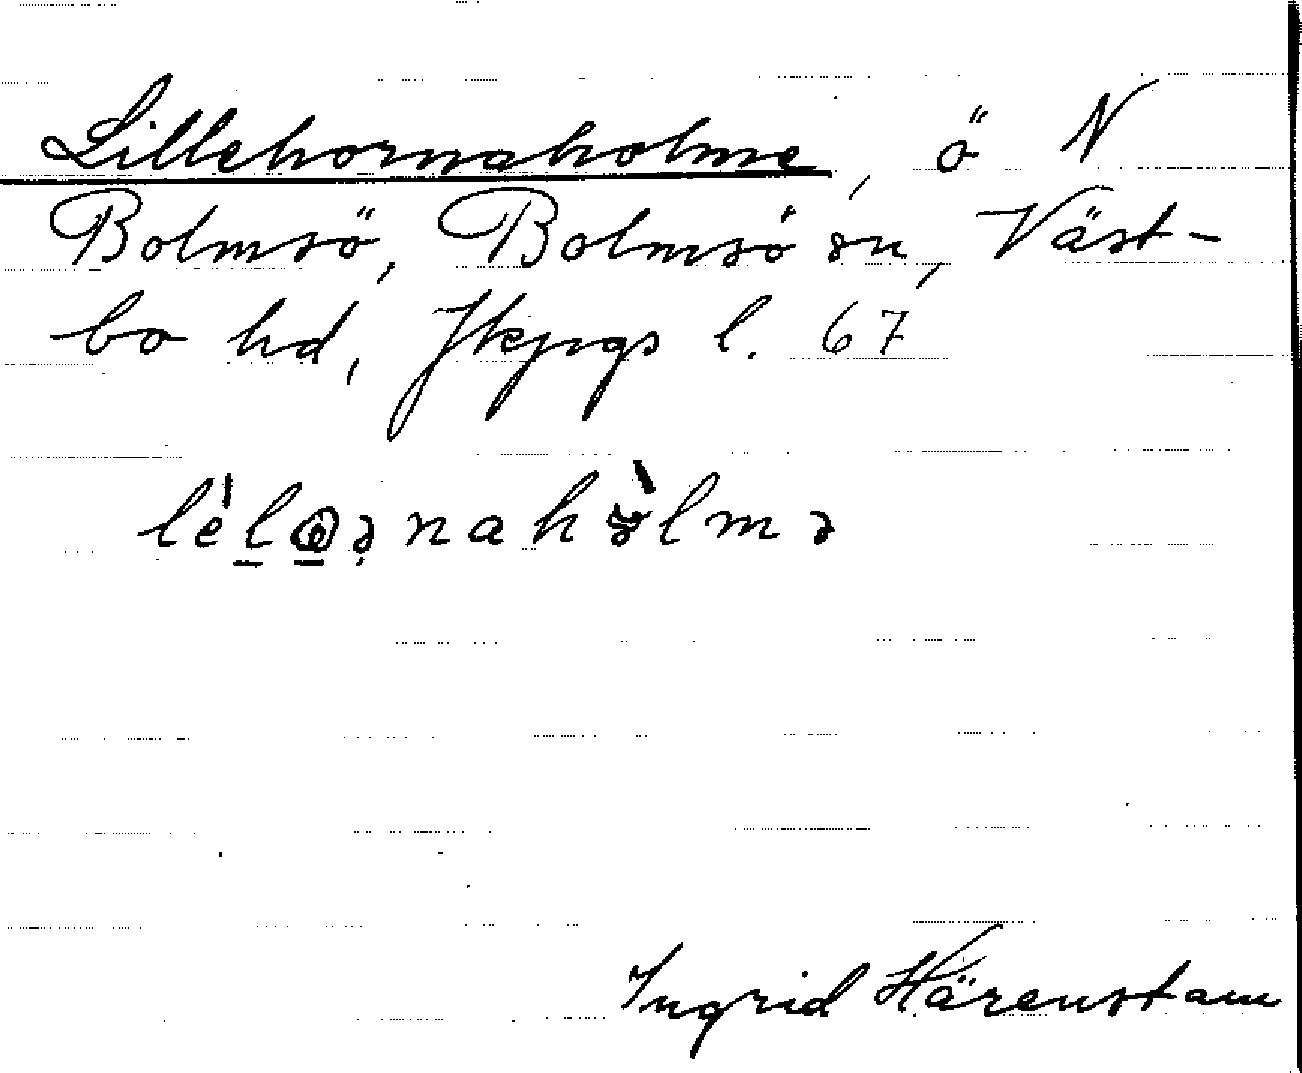 Lillehornaholme, ö N
Bolmsö, Bolmsö sn, Väst-
bo hd, Jkpgs l. 67
Ingrid Härenstam